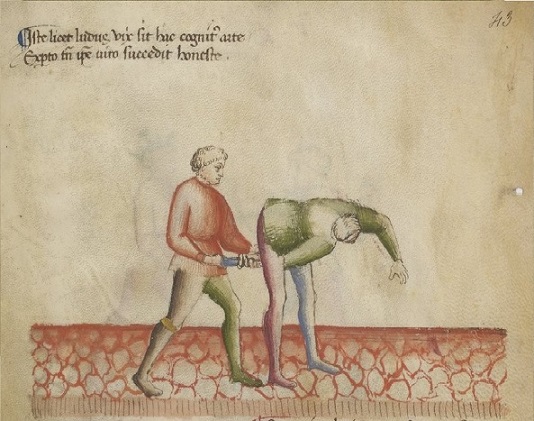 43
Iste licet ludus, vix sit hac cognitꝰ arte
Exꝑto tn̄ ip̄e uiro succedit honeste .